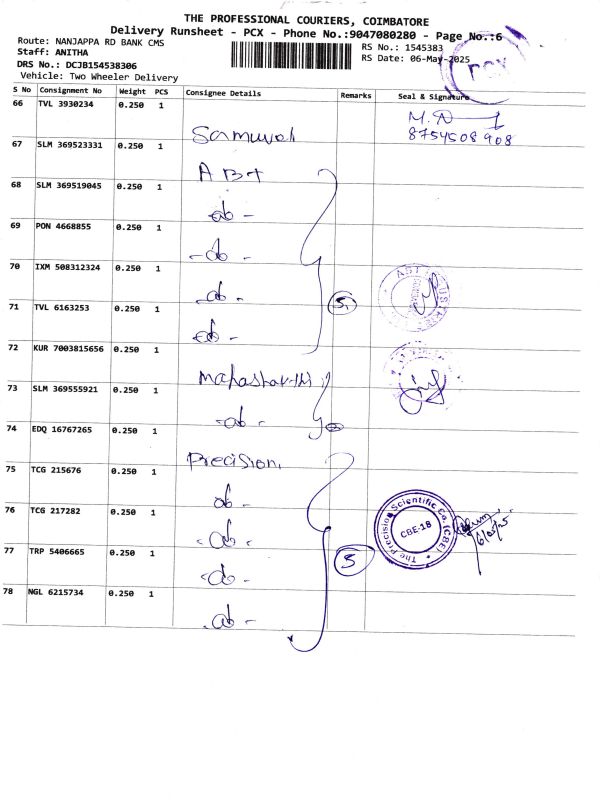 THE PROFESSIONAL COURIERS, COIMBATORE
Delivery Runsheet - PCX - Phone No.:9047080280 - Page No.:6
Route: NANJAPPA RD BANK CMS
RS No.: 1545383
Staff: ANITHA
RS Date: 06-May-2025
PCX
DRS No.: DCJB154538306
Vehicle: Two Wheeler Delivery
S No Consignment No Weight PCS Consignee Details Remarks Seal & Signature
66 TVL 3930234 0.250 1 Samuval M.
8754508908
67 SLM 369523331 0.250 1 ABT
68 SLM 369519045 0.250 1 -do-
69 PON 4668855 0.250 1 -do-
70 IXM 508312324 0.250 1 -do- 5
71 TVL 6163253 0.250 1 -do-
72 KUR 7003815656 0.250 1 Mahashakthi
73 SLM 369555921 0.250 1 -do-
74 EDQ 16767265 0.250 1 Precision
75 TCG 215676 0.250 1 do-
76 TCG 217282 0.250 1 -do- The Precision Scientific Co. (CBE) CBE-18
77 TRP 5406665 0.250 1 -do- 5
78 NGL 6215734 0.250 1 -do-